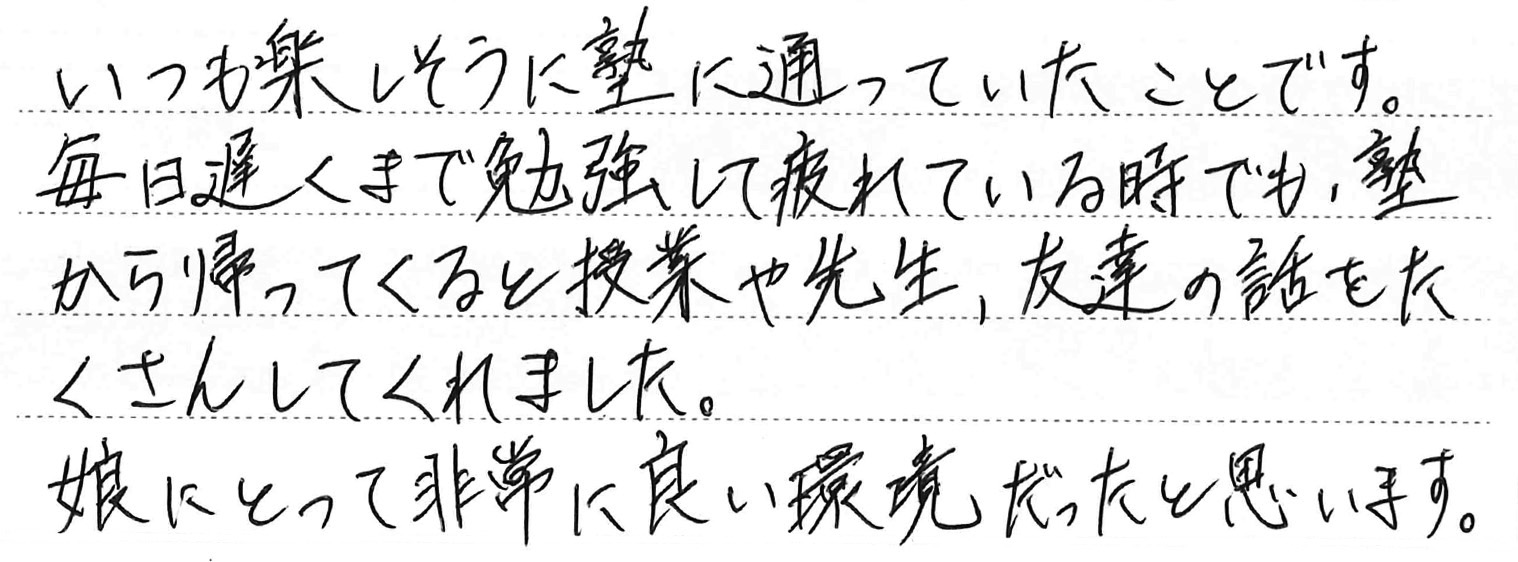 いつも楽しそうに塾に通っていたことです。
毎日遅くまで勉強して疲れている時でも、塾
から帰ってくると授業や先生、友達の話をた
くさんしてくれました。
娘にとって非常に良い環境だったと思います。